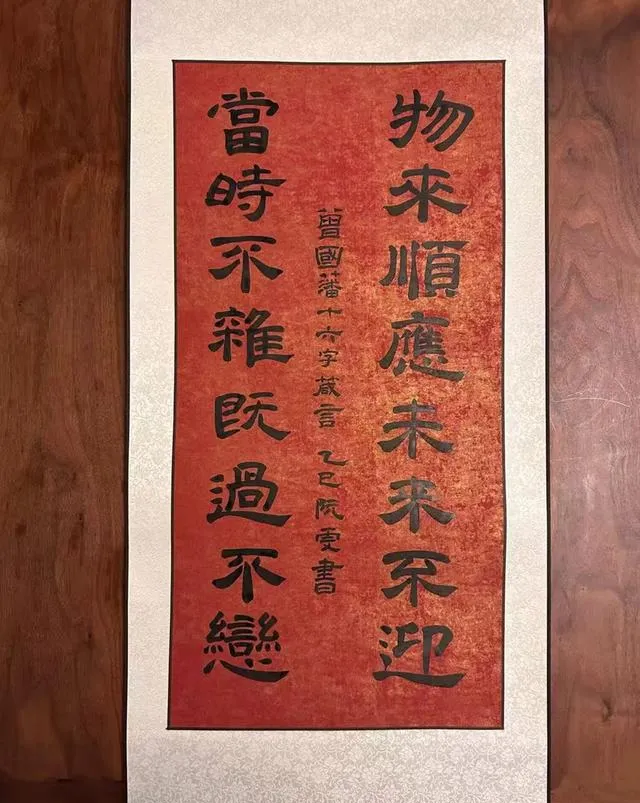 物來順應未来不迎
曾國藩十六字箴言 乙巳阮書
當時不雜既過不戀